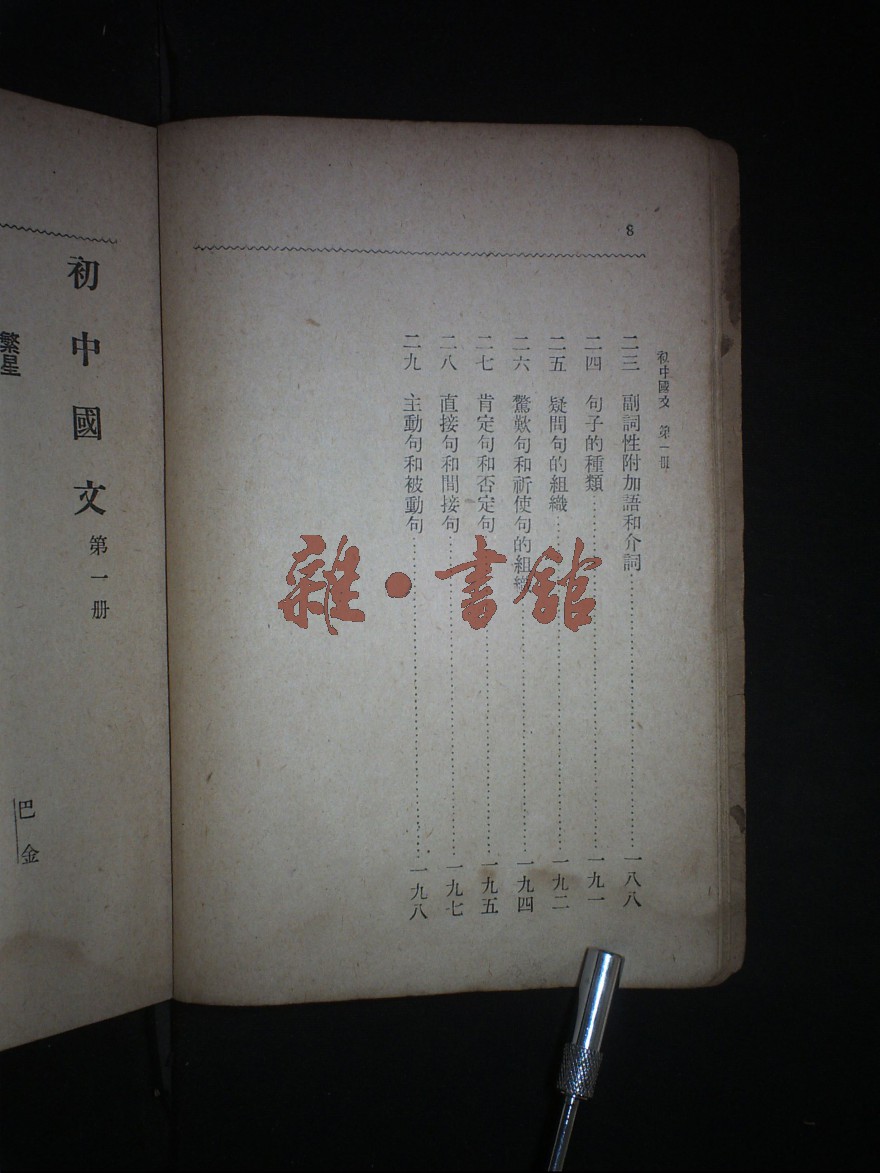 8
初中國文 第一册
二三 副詞性附加語和介詞……一八八
二四 句子的種類……一九一
二五 疑問句的組織……一九二
二六 驚歎句和祈使句的組織……一九四
二七 肯定句和否定句……一九五
二八 直接句和間接句……一九七
二九 主動句和被動句……一九八
雜·書館
初中國文 第一册
繁星
巴金